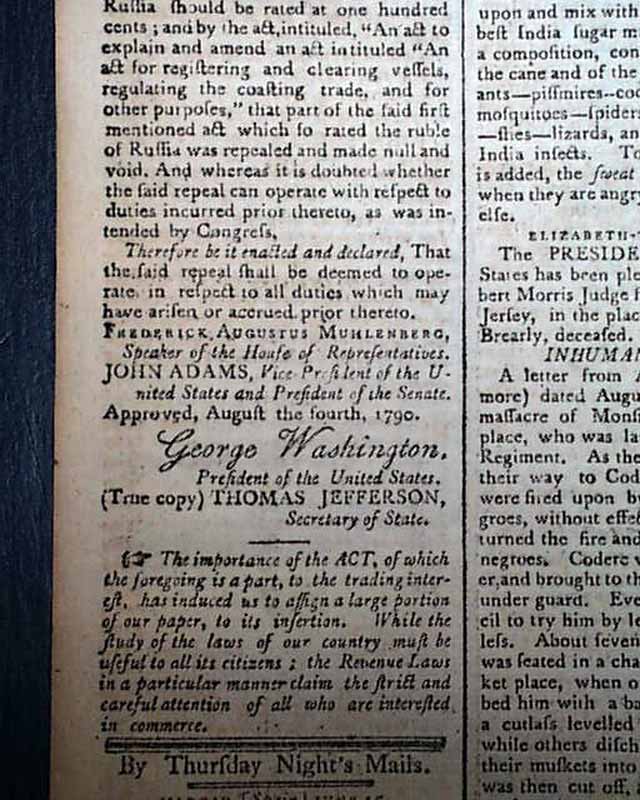 Ruſſia ſhould be rated at one hundred
cents ; and by the act, intituled, "An act to
explain and amend an act intituled "An
act for regiſtering and clearing veſſels,
regulating the coaſting trade, and for
other purpoſes," that part of the ſaid firſt
mentioned act which ſo rated the ruble
of Ruſſia was repealed and made null and
void. And whereas it is doubted whether
the ſaid repeal can operate with reſpect to
duties incurred prior thereto, as was in-
tended by Congreſs,
Therefore be it enacted and declared, That
the ſaid repeal ſhall be deemed to ope-
rate in reſpect to all duties which may
have ariſen or accrued prior thereto.
FREDERICK AUGUSTUS MUHLENBERG,
Speaker of the Houſe of Repreſentatives.
JOHN ADAMS, Vice-Preſident of the U-
nited States and Preſident of the Senate.
Approved, Auguſt the fourth, 1790.
George Washington,
Preſident of the United States.
(True copy) THOMAS JEFFERSON,
Secretary of State.
☞ The importance of the ACT, of which
the foregoing is a part, to the trading inter-
eſt, has induced us to aſſign a large portion
of our paper, to its inſertion. While the
ſtudy of the laws of our country muſt be
uſeful to all its citizens ; the Revenue Laws
in a particular manner claim the ſtrict and
careful attention of all who are intereſted
in commerce.
By Thurſday Night's Mails.
upon and mix with
beſt India ſugar m
a compoſition, con
the cane and of the
ants—piſſmires--coc
moſquitoes—ſpiders
—flies—lizards, an
India inſects. To
is added, the ſweat
when they are angry
elſe.
ELIZABETH-
The PRESIDE
States has been ple
bert Morris Judge f
Jerſey, in the plac
Brearly, deceaſed.
INHUMAN
A letter from A
more) dated Augu
maſſacre of Monſ
place, who was la
Regiment. As the
their way to Cod
were fired upon by
groes, without effec
turned the fire and
negroes. Codere w
er, and brought to th
under guard. Eve
cil to try him by le
leſs. About ſeven
was ſeated in a cha
ket place, when o
bed him with a ba
a cutlaſs levelled
while others diſch
their muſkets into
was then cut off,